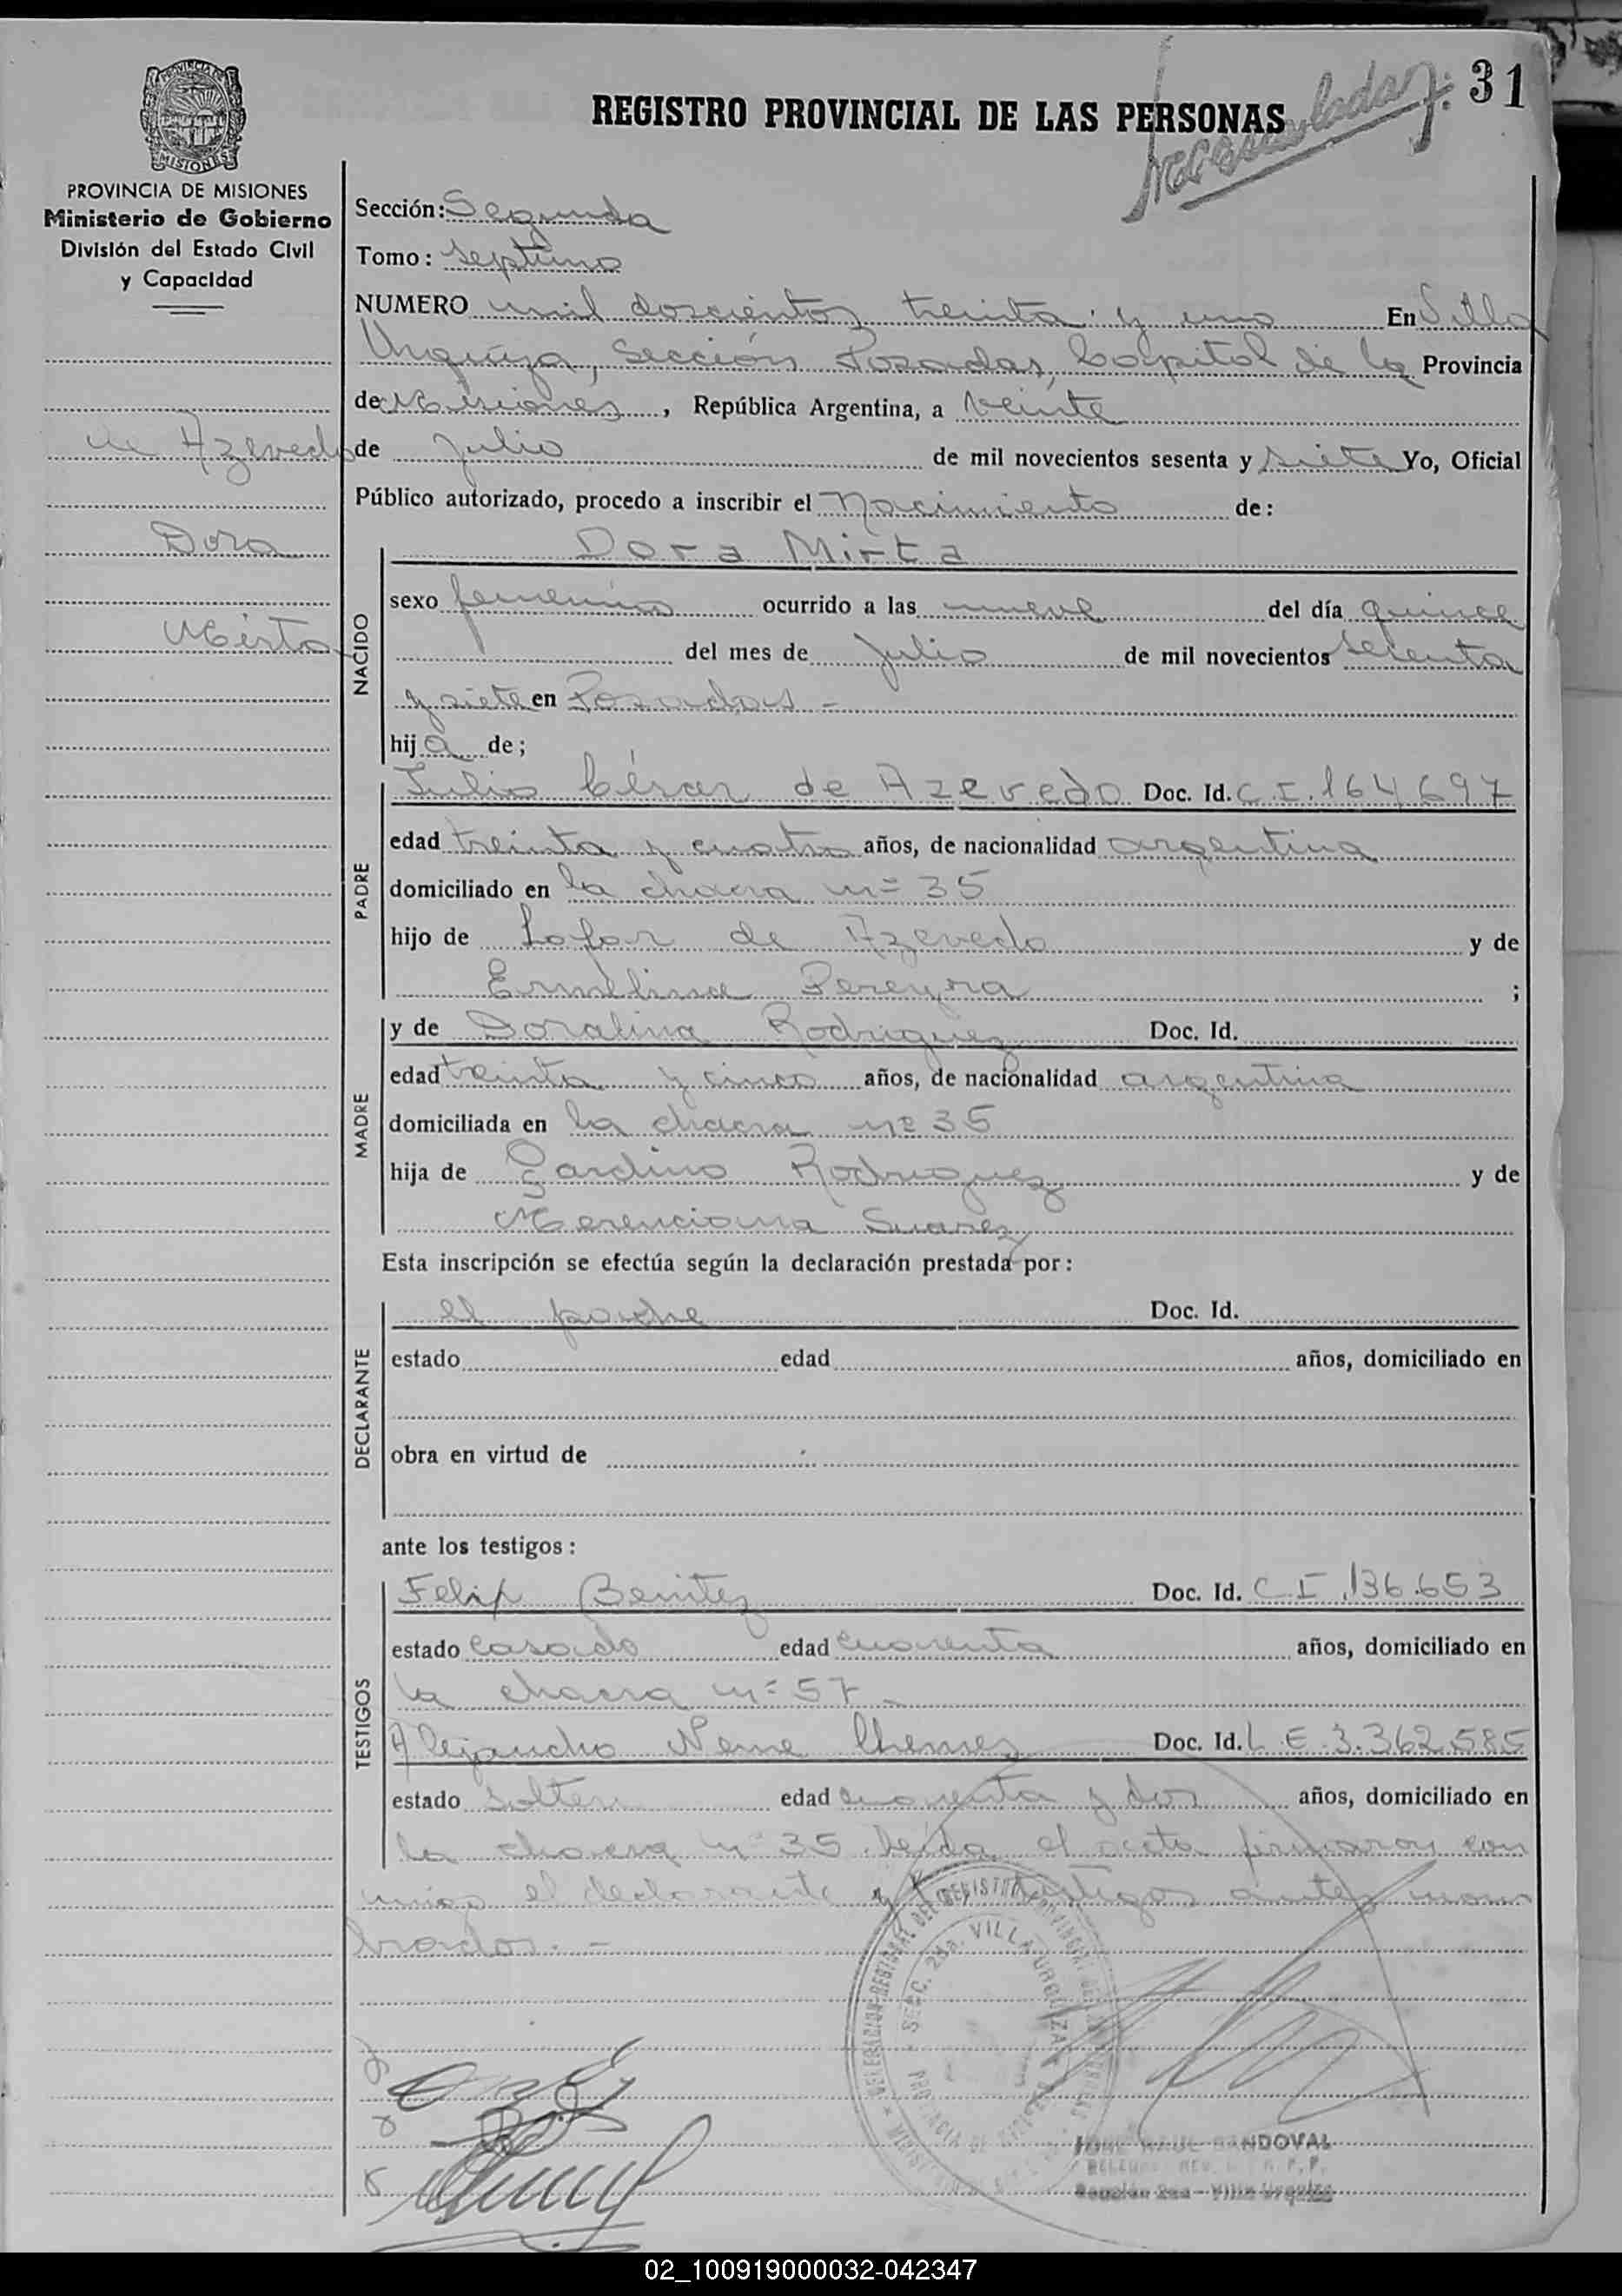 31
REGISTRO PROVINCIAL DE LAS PERSONAS
PROVINCIA DE MISIONES
Ministerio de Gobierno
División del Estado Civil
y Capacidad
de Azevedo
Dora
Mirta
Sección: Segunda
Tomo: septimo
NUMERO mil doscientos treinta y uno En Villa
Urquiza, Sección Posadas, Capital de la Provincia
de Misiones, República Argentina, a veinte
de Julio de mil novecientos sesenta y siete Yo, Oficial
Público autorizado, procedo a inscribir el Nacimiento de:
NACIDO
Dora Mirta
sexo femenino ocurrido a las nueve del día quince
del mes de Julio de mil novecientos sesenta
y siete en Posadas -
hija de;
PADRE
Julio César de Azevedo Doc. Id. C.I. 164697
edad treinta y cuatro años, de nacionalidad argentina
domiciliado en la chacra nº 35
hijo de de Azevedo y de
Pereyra ;
MADRE
y de Doralina Rodriguez Doc. Id.
edad treinta y cinco años, de nacionalidad argentina
domiciliada en la chacra nº 35
hija de Rodriguez y de
Merenciana Suarez
Esta inscripción se efectúa según la declaración prestada por:
DECLARANTE
el padre Doc. Id.
estado edad años, domiciliado en
obra en virtud de
ante los testigos:
TESTIGOS
Felix Benitez Doc. Id. C.I. 136.653
estado casado edad cuarenta años, domiciliado en
la chacra nº 57 -
Alejandro Doc. Id. L.E. 3.362.585
estado soltero edad cuarenta y dos años, domiciliado en
la chacra nº 35. Leída el acta firmaron con
migo el declarante y los testigos antes nom
brados. -
SECC. 2da. VILLA URQUIZA
SANDOVAL
Sección 2da - Villa Urquiza
02_100919000032-042347